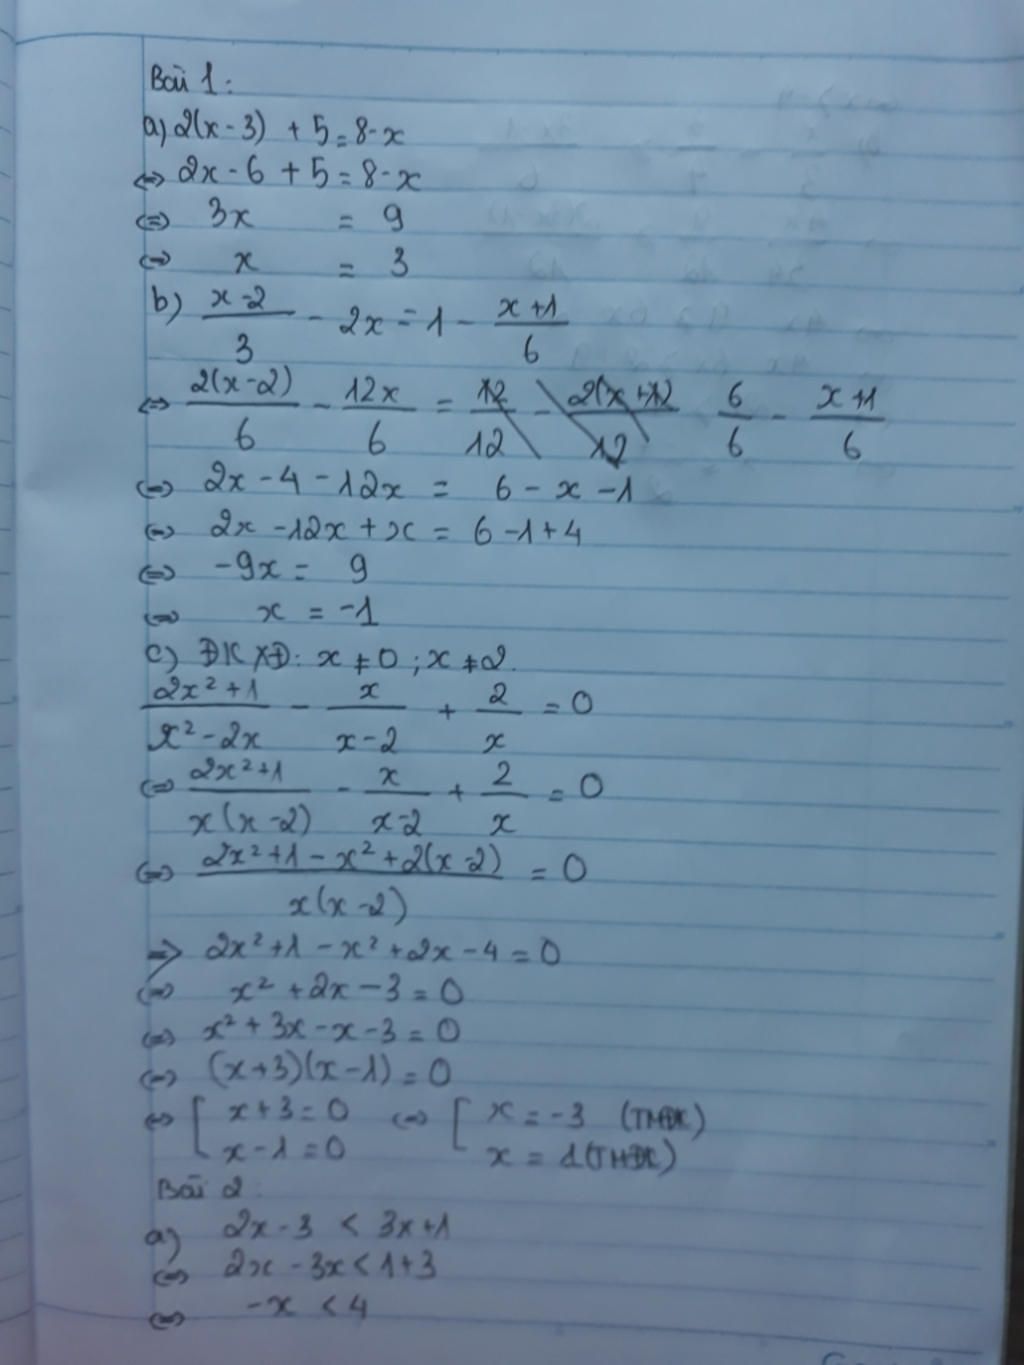 Bài 1:
a) 2(x-3) + 5 = 8-x
⇔ 2x-6+5 = 8-x
⇔ 3x = 9
⇔ x = 3
b) (x-2)/3 - 2x = 1 - (x+1)/6
⇔ 2(x-2)/6 - 12x/6 = 12/12 - 2(x+12)/12 6/6 - (x+1)/6
⇔ 2x-4-12x = 6-x-1
⇔ 2x-12x+x = 6-1+4
⇔ -9x = 9
⇔ x = -1
c) ĐKXĐ: x ≠ 0 ; x ≠ 2.
(2x²+1)/(x²-2x) - x/(x-2) + 2/x = 0
⇔ (2x²+1)/(x(x-2)) - x/(x-2) + 2/x = 0
⇔ (2x²+1-x²+2(x-2))/(x(x-2)) = 0
⇒ 2x²+1-x²+2x-4 = 0
⇔ x²+2x-3 = 0
⇔ x²+3x-x-3 = 0
⇔ (x+3)(x-1) = 0
⇔ [ x+3 = 0 ⇔ [ x = -3 (TMĐK)
x-1 = 0 x = 1 (TMĐK)
Bài 2:
a) 2x-3 < 3x+1
⇔ 2x-3x < 1+3
⇔ -x < 4